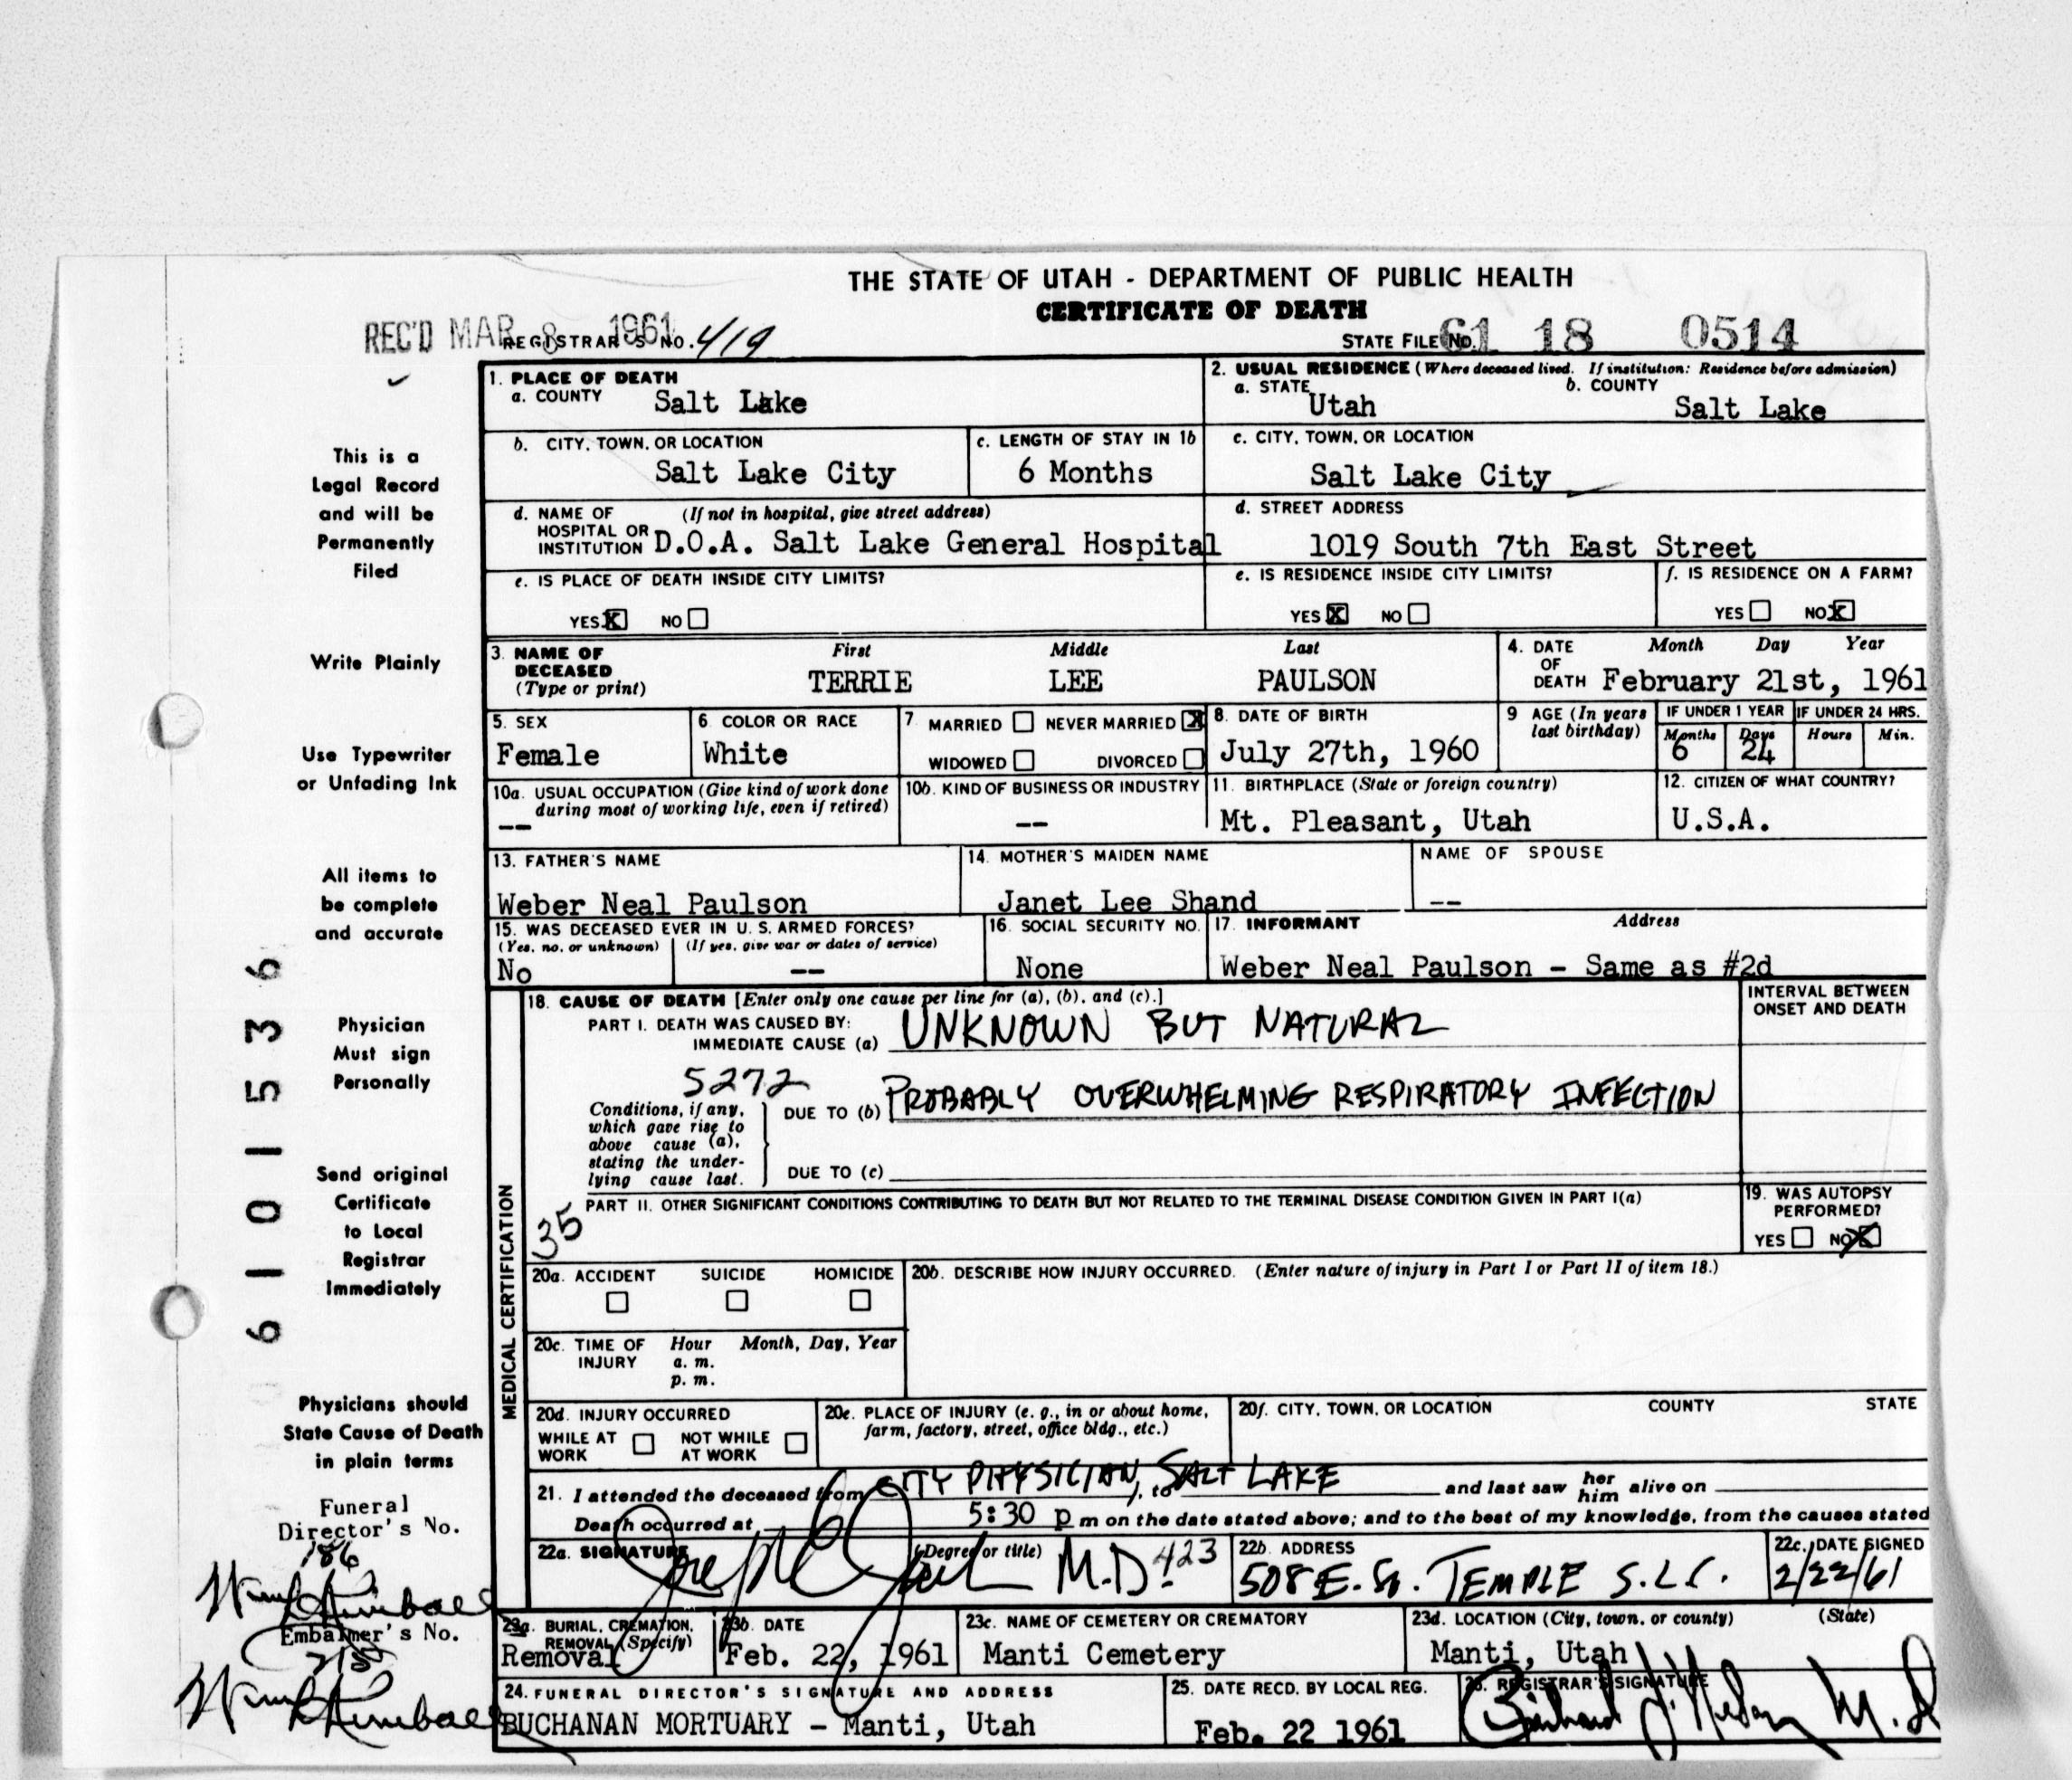 THE STATE OF UTAH - DEPARTMENT OF PUBLIC HEALTH
CERTIFICATE OF DEATH
REC'D MAR 8 1961 REGISTRAR'S NO. 419 STATE FILE NO. 61 18 0514
1. PLACE OF DEATH
a. COUNTY Salt Lake
2. USUAL RESIDENCE (Where deceased lived. If institution: Residence before admission)
a. STATE Utah b. COUNTY Salt Lake
b. CITY, TOWN, OR LOCATION Salt Lake City
c. LENGTH OF STAY IN 1b 6 Months
c. CITY, TOWN, OR LOCATION Salt Lake City
d. NAME OF HOSPITAL OR INSTITUTION (If not in hospital, give street address) D.O.A. Salt Lake General Hospital
d. STREET ADDRESS 1019 South 7th East Street
e. IS PLACE OF DEATH INSIDE CITY LIMITS?
YES X NO
e. IS RESIDENCE INSIDE CITY LIMITS?
YES X NO
f. IS RESIDENCE ON A FARM?
YES NO X
3. NAME OF DECEASED (Type or print) First Middle Last
TERRIE LEE PAULSON
4. DATE OF DEATH Month Day Year
February 21st, 1961
5. SEX Female
6. COLOR OR RACE White
7. MARRIED NEVER MARRIED X
WIDOWED DIVORCED
8. DATE OF BIRTH July 27th, 1960
9 AGE (In years last birthday)
IF UNDER 1 YEAR Months 6 Days 24
IF UNDER 24 HRS. Hours Min.
10a. USUAL OCCUPATION (Give kind of work done during most of working life, even if retired) --
10b. KIND OF BUSINESS OR INDUSTRY --
11. BIRTHPLACE (State or foreign country) Mt. Pleasant, Utah
12. CITIZEN OF WHAT COUNTRY? U.S.A.
13. FATHER'S NAME Weber Neal Paulson
14. MOTHER'S MAIDEN NAME Janet Lee Shand
NAME OF SPOUSE --
15. WAS DECEASED EVER IN U. S. ARMED FORCES?
(Yes, no, or unknown) No (If yes, give war or dates of service) --
16. SOCIAL SECURITY NO. None
17. INFORMANT Address
Weber Neal Paulson - Same as #2d
MEDICAL CERTIFICATION
18. CAUSE OF DEATH [Enter only one cause per line for (a), (b), and (c).]
INTERVAL BETWEEN ONSET AND DEATH
PART I. DEATH WAS CAUSED BY:
IMMEDIATE CAUSE (a) UNKNOWN BUT NATURAL
5272
Conditions, if any, which gave rise to above cause (a), stating the underlying cause last.
DUE TO (b) PROBABLY OVERWHELMING RESPIRATORY INFECTION
DUE TO (c)
PART II. OTHER SIGNIFICANT CONDITIONS CONTRIBUTING TO DEATH BUT NOT RELATED TO THE TERMINAL DISEASE CONDITION GIVEN IN PART I(a)
35
19. WAS AUTOPSY PERFORMED?
YES NO X
20a. ACCIDENT SUICIDE HOMICIDE
20b. DESCRIBE HOW INJURY OCCURRED. (Enter nature of injury in Part I or Part II of item 18.)
20c. TIME OF INJURY Hour Month, Day, Year
a. m.
p. m.
20d. INJURY OCCURRED
WHILE AT WORK NOT WHILE AT WORK
20e. PLACE OF INJURY (e. g., in or about home, farm, factory, street, office bldg., etc.)
20f. CITY, TOWN, OR LOCATION COUNTY STATE
21. I attended the deceased from CITY PHYSICIAN, to SALT LAKE and last saw her him alive on
Death occurred at 5:30 p m on the date stated above; and to the best of my knowledge, from the causes stated
22a. SIGNATURE (Degree or title) M.D. 423
22b. ADDRESS 508 E. So. TEMPLE S.L.C.
22c. DATE SIGNED 2/22/61
23a. BURIAL, CREMATION, REMOVAL (Specify) Removal
23b. DATE Feb. 22, 1961
23c. NAME OF CEMETERY OR CREMATORY Manti Cemetery
23d. LOCATION (City, town, or county) (State) Manti, Utah
24. FUNERAL DIRECTOR'S SIGNATURE AND ADDRESS
BUCHANAN MORTUARY - Manti, Utah
25. DATE RECD. BY LOCAL REG. Feb. 22 1961
26. REGISTRAR'S SIGNATURE M. D
This is a
Legal Record
and will be
Permanently
Filed
Write Plainly
Use Typewriter
or Unfading Ink
All items to
be complete
and accurate
Physician
Must sign
Personally
Send original
Certificate
to Local
Registrar
Immediately
Physicians should
State Cause of Death
in plain terms
Funeral
Director's No.
186
Embalmer's No.
6 1 0 1 5 3 6